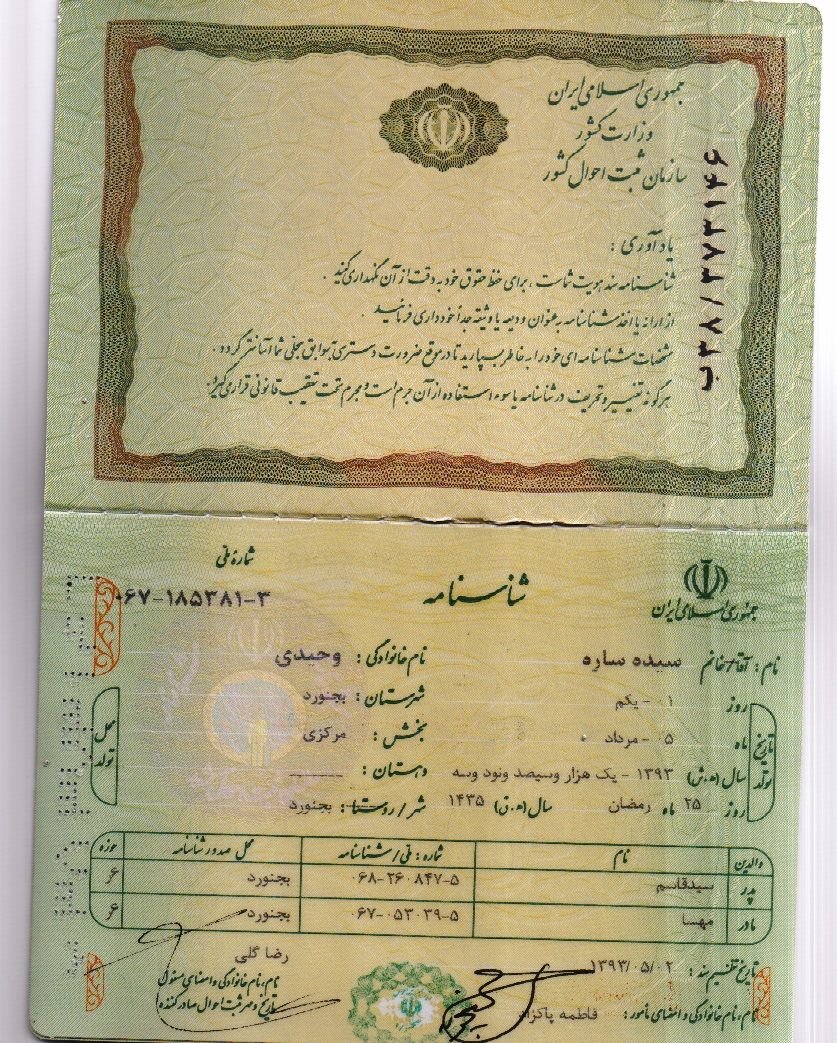 جمهوری اسلامی ایران
وزارت کشور
سازمان ثبت احوال کشور
ب۳۸/۳۷۳۱۴۶
یادآوری :
شناسنامه سند هویت شماست ، برای حفظ حقوق خود به دقت از آن نگهداری کنید .
از ارائه یا اخذ شناسنامه به عنوان ودیعه یا وثیقه جداً خودداری فرمائید .
مشخصات شناسنامه ای خود را به خاطر بسپارید تا در موقع ضرورت دسترسی به سوابق سجلی شما آسانتر گردد .
هرگونه تغییر و تحریف در شناسنامه یا سوء استفاده از آن جرم است و مجرم تحت تعقیب قانونی قرار می گیرد .
جمهوری اسلامی ایران
شناسنامه
شماره ملی
۰۶۷-۱۸۵۳۸۱-۳
نام : آقا/خانم سیده ساره نام خانوادگی : وحیدی
تاریخ تولد
روز ۱ - یکم
ماه ۰۵ - مرداد
سال (ه.ش) ۱۳۹۳ - یک هزار وسیصد ونود وسه
روز ۲۵ ماه رمضان سال (ه.ق) ۱۴۳۵
محل تولد
شهرستان : بجنورد
بخش : مرکزی
دهستان : ــــــــ
شهر / روستا : بجنورد
والدین نام شماره : ملی / شناسنامه محل صدور شناسنامه حوزه
پدر سیدقاسم ۰۶۸-۲۶۰۸۴۷-۵ بجنورد ۶
مادر مهسا ۰۶۷-۰۵۳۰۳۹-۵ بجنورد ۶
تاریخ تنظیم سند : ۱۳۹۳/۰۵/۰۲
نام ، نام خانوادگی و امضای مأمور : فاطمه پاکزاد
رضا گلی
نام ، نام خانوادگی و امضای مسئول
تاریخ و مهر ثبت احوال صادر کننده